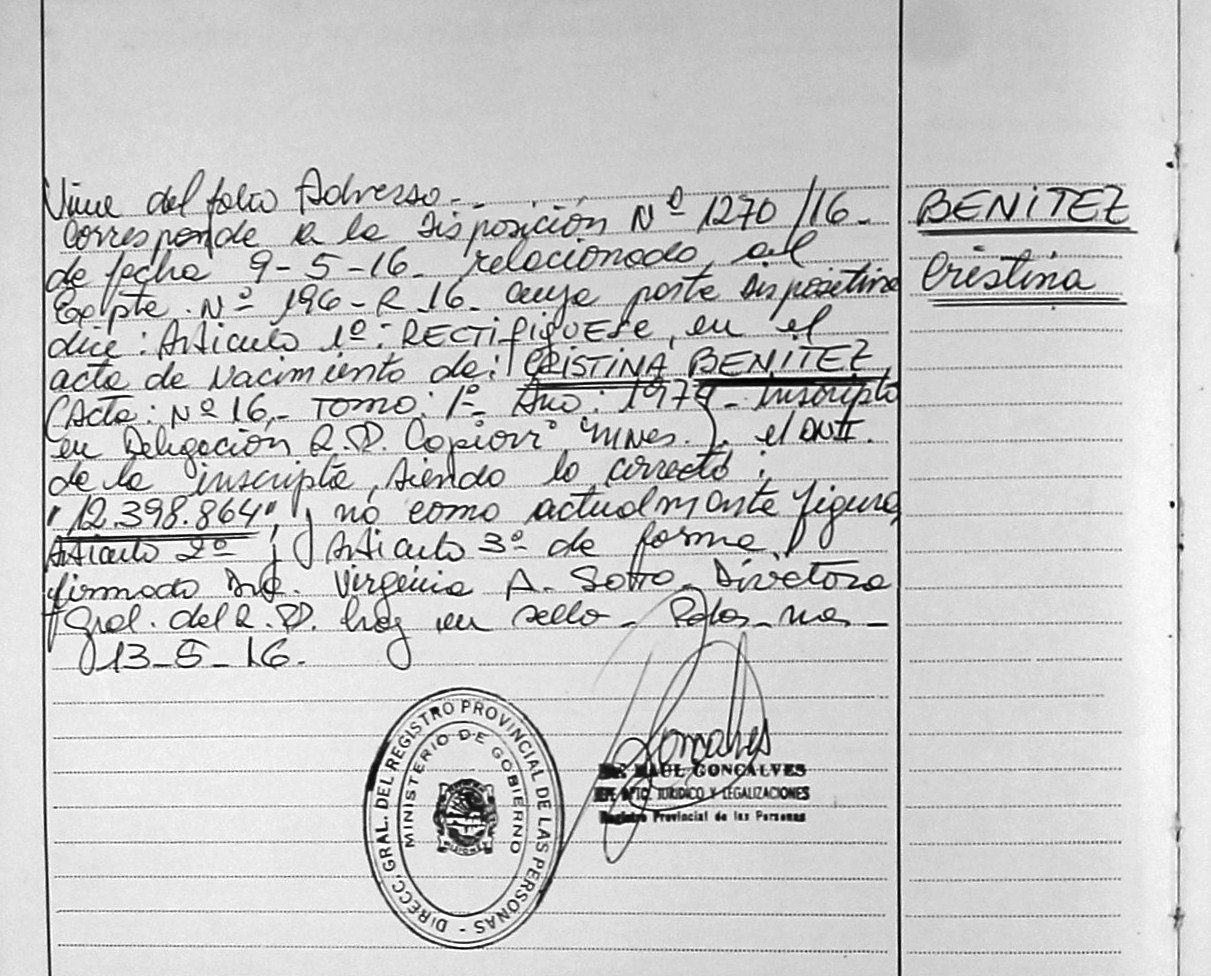 Viene del folio Adverso.-
Corresponde a la Disposición Nº 1270/16-
de fecha 9-5-16- relacionado al
Expte. Nº 196-R-16- cuya parte dispositiva
dice: Articulo 1º: RECTIFIQUESE, en el
acta de Nacimiento de: CRISTINA BENITEZ
(Acta: Nº 16.- TOMO: 1º- Año: 1979- Inscripta
en Delegación R.P. Copiovi Mnes.). el DNI.
de la inscripta, siendo lo correcto:
"12.398.864" y no como actualmente figura,
Articulo 2º y Articulo 3º de forma,
firmado Dra. Virginia A. Sotto- Directora
Gral. del R.P. hay un sello- Pdas-Mnes-
13-5-16.
BENITEZ
Cristina
DIRECC. GRAL. DEL REGISTRO PROVINCIAL DE LAS PERSONAS -
MINISTERIO DE GOBIERNO
MISIONES
Goncalves
Dr. RAUL GONCALVES
JEFE DPTO. JURIDICO Y LEGALIZACIONES
Registro Provincial de las Personas